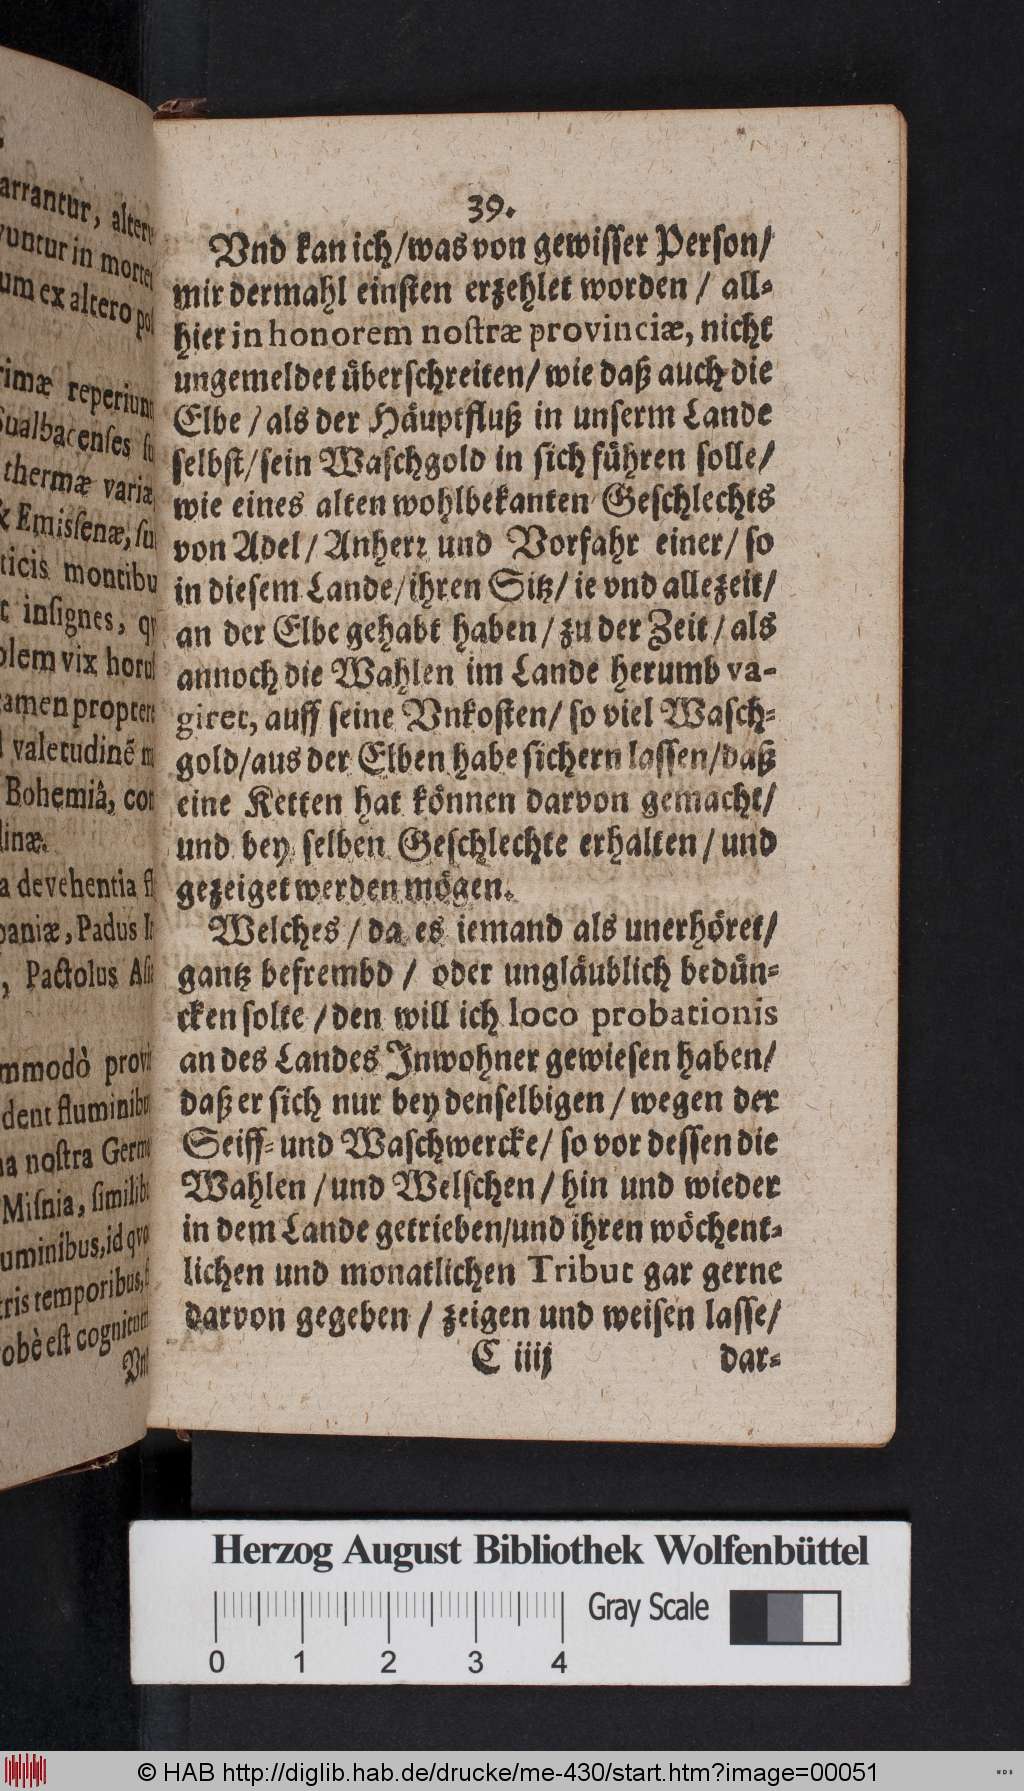 arrantur, alter
untur in morte
um ex altero po
rimæ reperiun
Sualbacenses su
thermæ variæ
& Emissenæ, su
ticis montibu
t insignes, q
olem vix horul
tamen propter
valetudinẽ m
Bohemiâ, con
linæ.
a devehentia fl
paniæ, Padus I
, Pactolus Asi
mmodò provi
dent fluminibu
na nostra Germ
Misnia, simili
uminibus, id quo
tris temporibus,
obè est cognitum
Vn
39.
Vnd kan ich/was von gewisser Person/
mir dermahl einsten erzehlet worden / all-
hier in honorem nostræ provinciæ, nicht
ungemeldet uͤberschreiten/ wie daß auch die
Elbe / als der Haͤuptfluß in unserm Lande
selbst/sein Waschgold in sich fuͤhren solle/
wie eines alten wohlbekanten Geschlechts
von Adel / Anherꝛ und Vorfahr einer/ so
in diesem Lande/ihren Sitz/ ie vnd allezeit/
an der Elbe gehabt haben / zu der Zeit / als
annoch die Wahlen im Lande herumb va-
giret, auff seine Vnkosten/ so viel Wasch-
gold/aus der Elben habe sichern lassen/daß
eine Ketten hat koͤnnen darvon gemacht/
und bey selben Geschlechte erhalten / und
gezeiget werden moͤgen.
Welches / da es iemand als unerhoͤret/
gantz befrembd / oder unglaͤublich beduͤn-
cken solte / den will ich loco probationis
an des Landes Inwohner gewiesen haben/
daß er sich nur bey denselbigen / wegen der
Seiff- und Waschwercke/ so vor dessen die
Wahlen / und Welschen / hin und wieder
in dem Lande getrieben/und ihren woͤchent-
lichen und monatlichen Tribut gar gerne
darvon gegeben / zeigen und weisen lasse/
C iiij dar-
Herzog August Bibliothek Wolfenbüttel
Gray Scale
0 1 2 3 4
© HAB http://diglib.hab.de/drucke/me-430/start.htm?image=00051